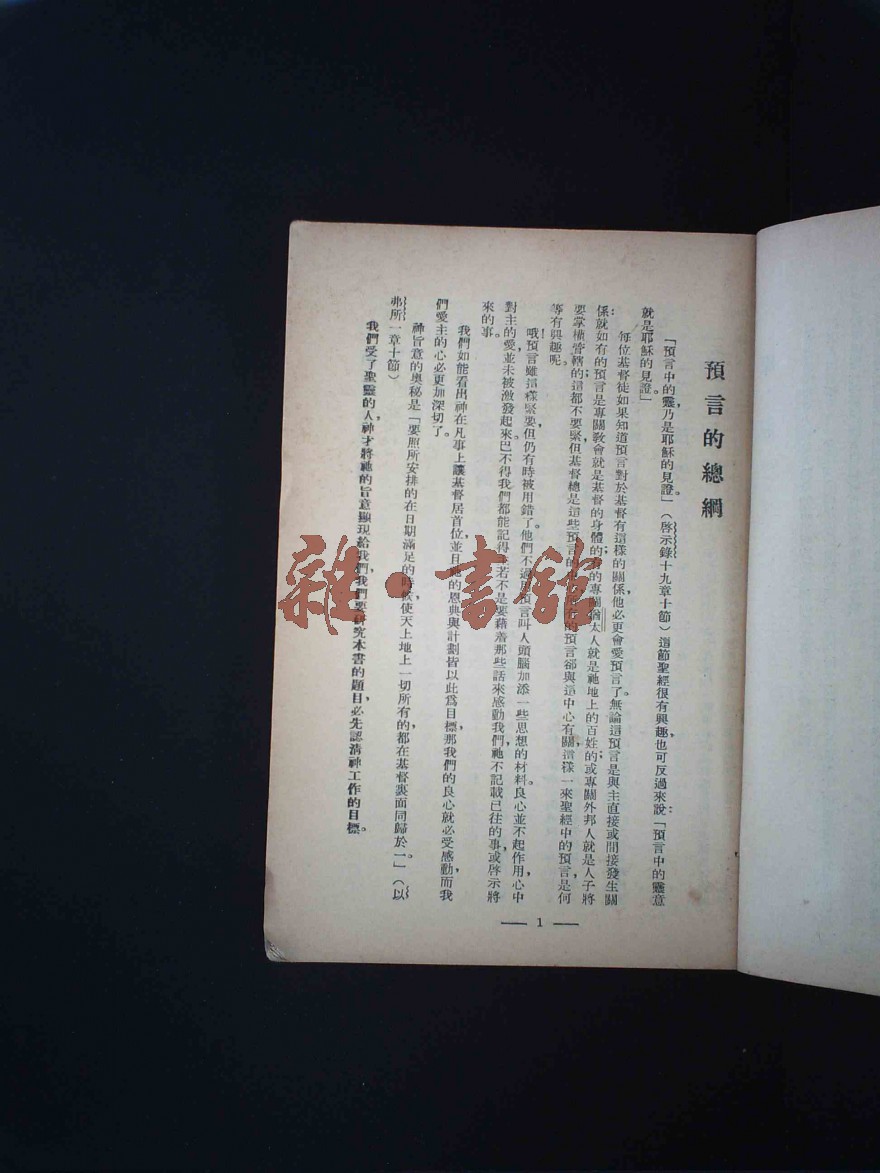 預言的總綱
「預言中的靈，乃是耶穌的見證。」（啓示錄十九章十節）這節聖經很有興趣也可反過來說：「預言中的靈意
就是耶穌的見證」
每位基督徒如果知道預言對於基督有這樣的關係，他必更會愛預言了。無論這預言是與主直接或間接發生關
係：就如有的預言是專關教會就是基督的身體的；有的專關猶太人就是祂地上的百姓的；或專關外邦人就是人子將
要掌權管轄的；這都不要緊，但基督總是這些預言的 的預言卻與這中心有關，這樣一來聖經中的預言是何
等有興趣呢。
哦！預言雖這樣緊要，但仍有時被用錯了。他們不過用預言叫人頭腦加添一些思想的材料。良心並不起作用，心中
對主的愛，並未被激發起來。巴不得我們都能記得 若不是要藉着那些話來感動我們，祂不記載已往的事或啓示將
來的事。
我們如能看出神在凡事上讓基督居首位，並且祂的恩典與計劃皆以此爲目標，那我們的良心就必受感動，而我
們愛主的心必更加深切了。
神旨意的奧秘是「要照所安排的，在日期滿足的時候，使天上地上一切所有的，都在基督裏面同歸於一。」（以
弗所一章十節）
我們受了聖靈的人，神才將祂的旨意顯現給我們，我們要研究本書的題目，必先認清神工作的目標。
— 1 —
雜·書館